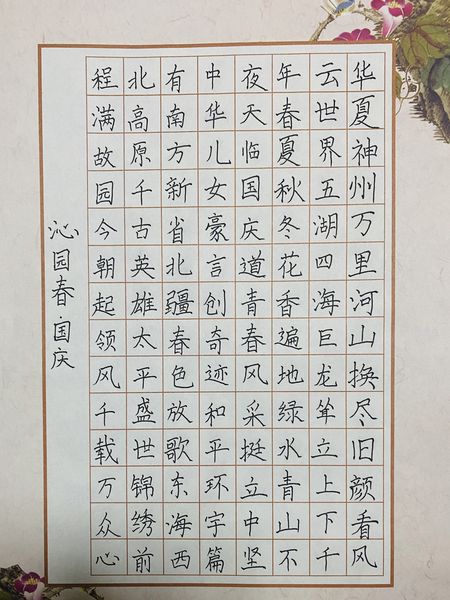 华夏神州万里河山换尽旧颜看风
云世界五湖四海巨龙耸立上下千
年春夏秋冬花香遍地绿水青山不
夜天临国庆道青春风采挺立中坚
中华儿女豪言创奇迹和平环宇篇
有南方新省北疆春色放歌东海西
北高原千古英雄太平盛世锦绣前
程满故园今朝起领风千载万众心
沁园春·国庆